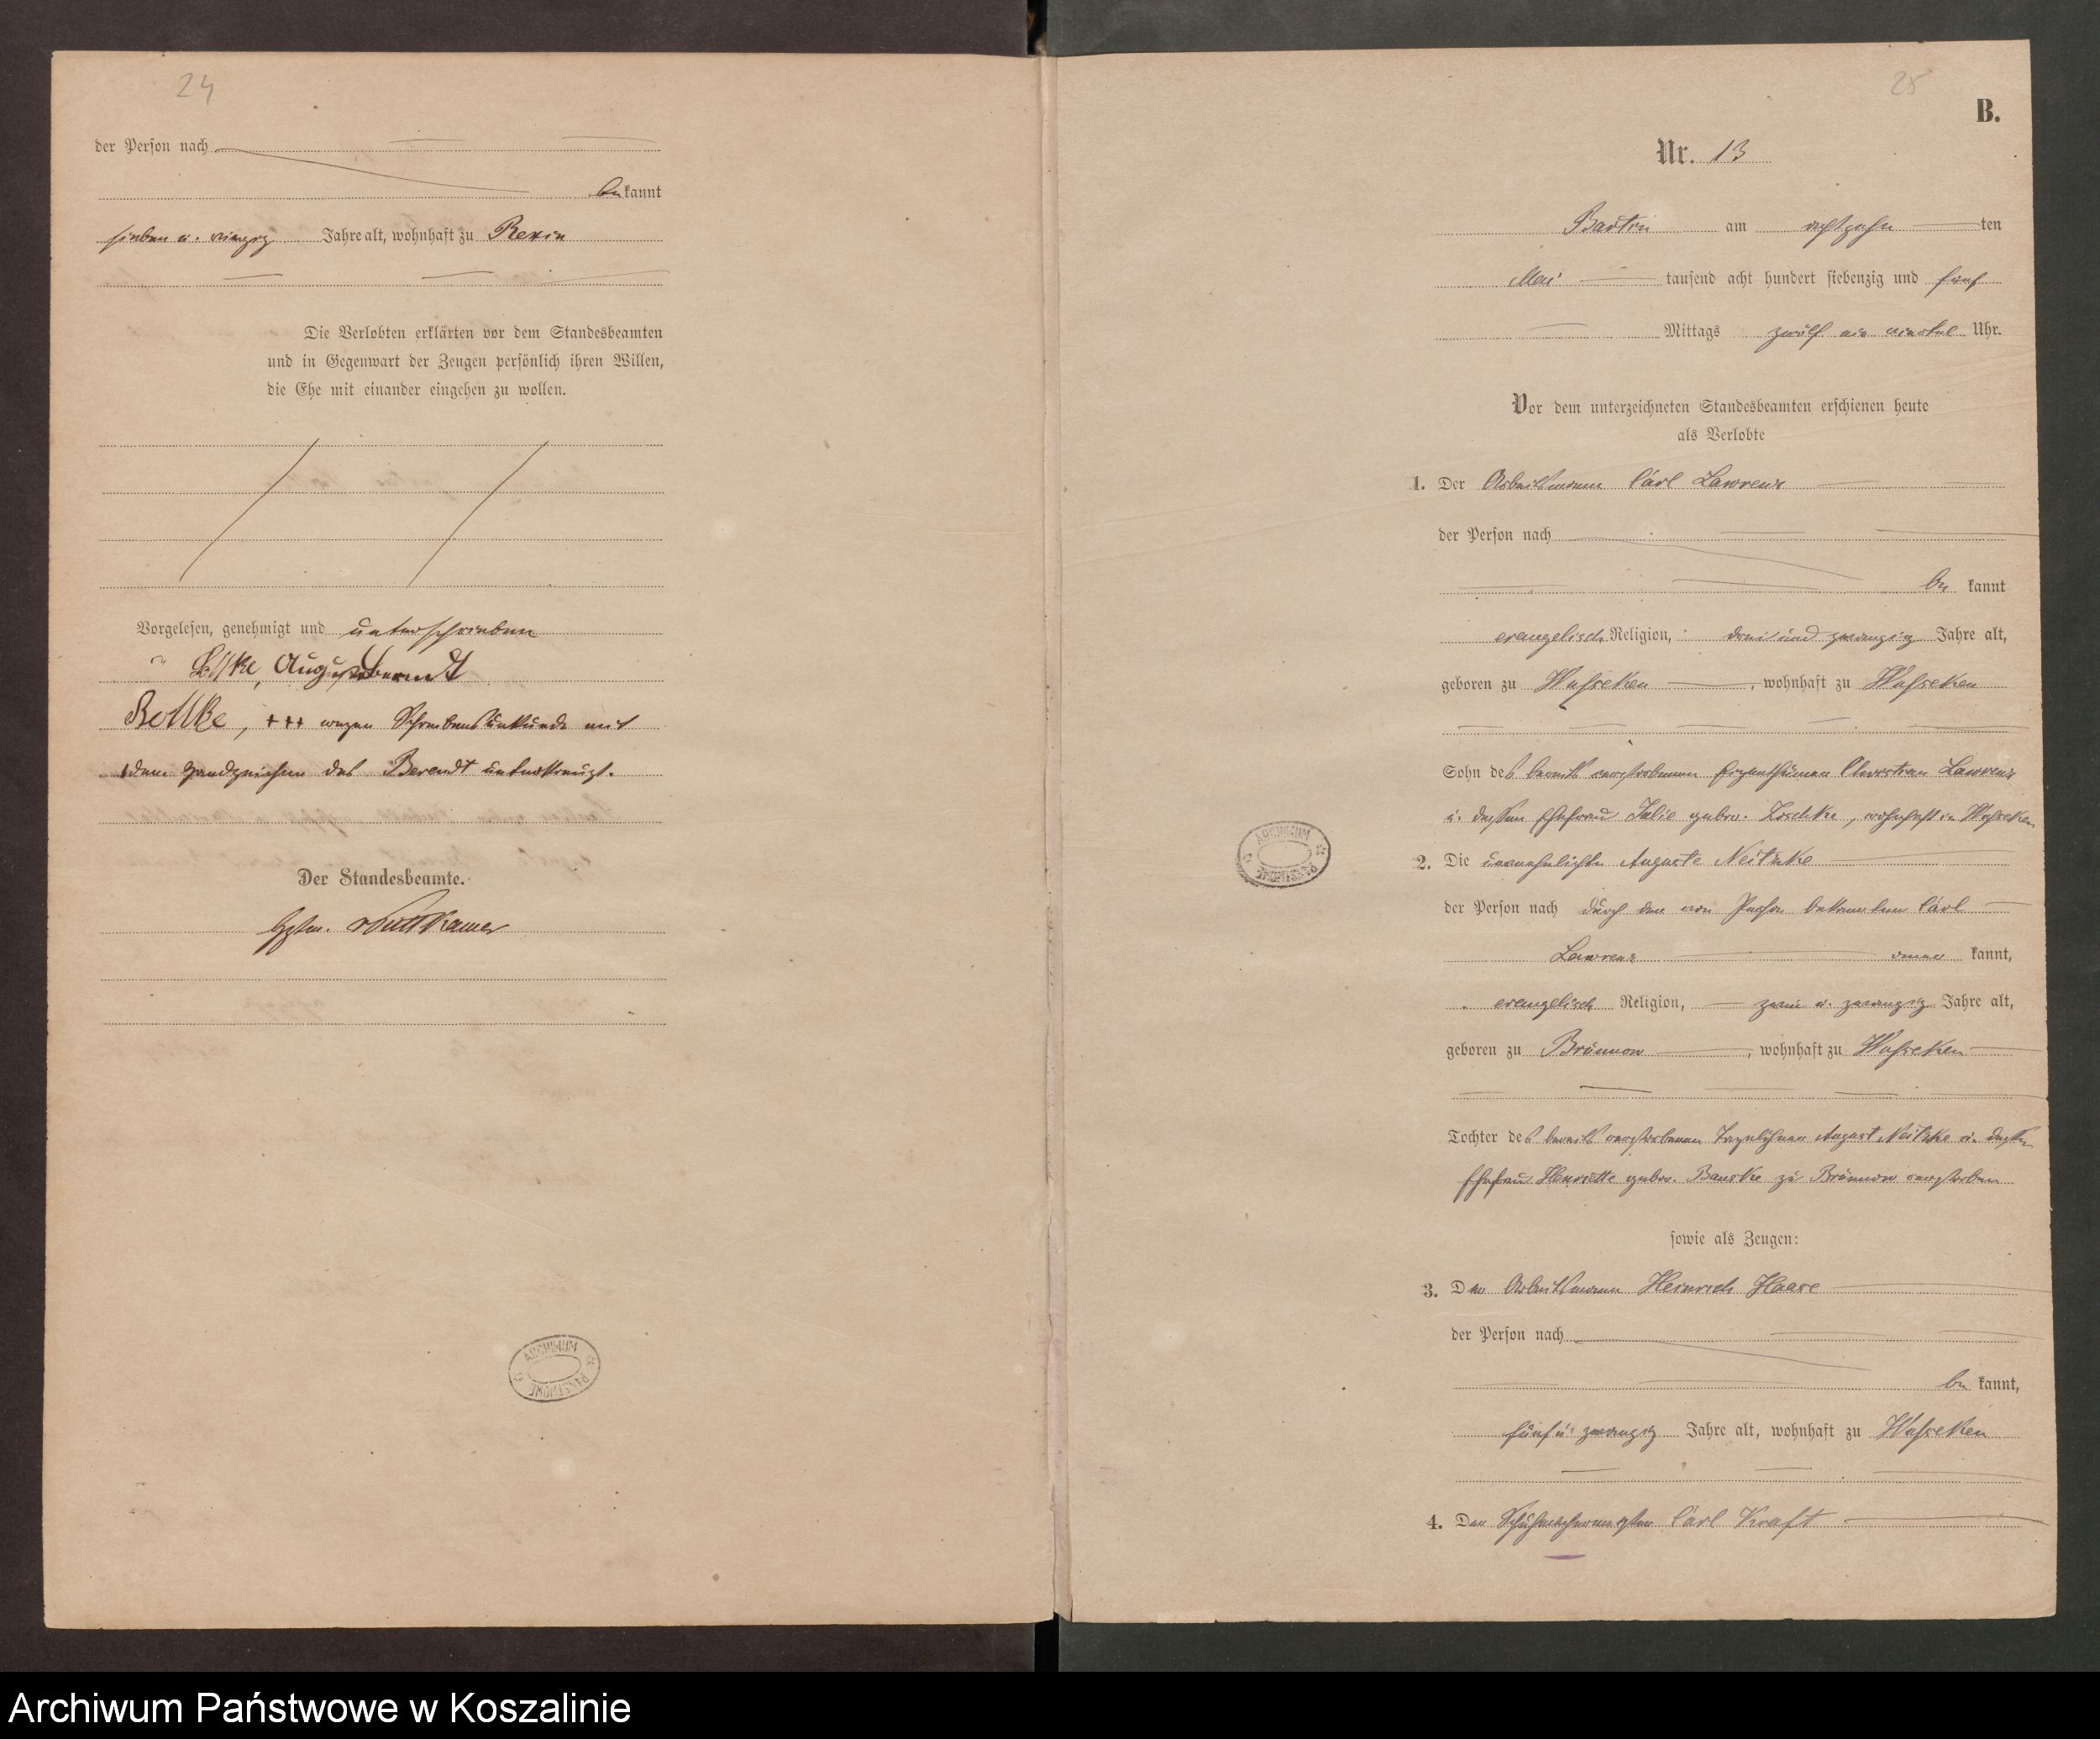 24
der Person nach
bekannt
sieben u. vierzig Jahre alt, wohnhaft zu Rexin
Die Verlobten erklärten vor dem Standesbeamten
und in Gegenwart der Zeugen persönlich ihren Willen,
die Ehe mit einander eingehen zu wollen.
Vorgelesen, genehmigt und unterschrieben
August
+++ wegen Schreibensunkunde mit
dem Handzeichen des Berendt unterkreuzt.
Der Standesbeamte.
v Puttkamer
ARCHIWUM PAŃSTWOWE
25
B.
Nr. 13
Bartin am achtzehn ten
Mai tausend acht hundert siebenzig und fünf
Mittags zwölf ein viertel Uhr.
Vor dem unterzeichneten Standesbeamten erschienen heute
als Verlobte
1. Der Arbeitsmann Carl Lawrenz
der Person nach
be kannt
evangelisch Religion, drei und zwanzig Jahre alt,
geboren zu Wusseken, wohnhaft zu Wusseken
Sohn des bereits verstorbenen Eigenthümer Christian Lawrenz
u. dessen Ehefrau Julie gebor. Zoschke, wohnhaft in Wusseken
2. Die unverehelichte Auguste Neitzke
der Person nach durch den von Person bekannten Carl
Lawrenz aner kannt,
evangelisch Religion, zwei u. zwanzig Jahre alt,
geboren zu Brünnow, wohnhaft zu Wusseken
Tochter des bereits verstorbenen Tagelöhner August Neitzke u. dessen
Ehefrau Henriette gebor. Banske zu Brünnow verstorben
sowie als Zeugen:
3. Der Arbeitsmann Heinrich Haase
der Person nach
be kannt,
fünf u. zwanzig Jahre alt, wohnhaft zu Wusseken
4. Der Schuhmachermeister Carl Kraft
ARCHIWUM PAŃSTWOWE
Archiwum Państwowe w Koszalinie